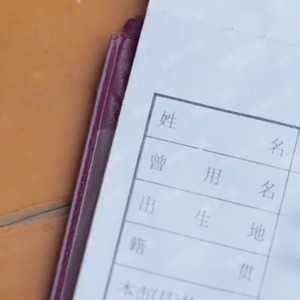 姓名
曾用名
出生地
籍贯
本市(县)